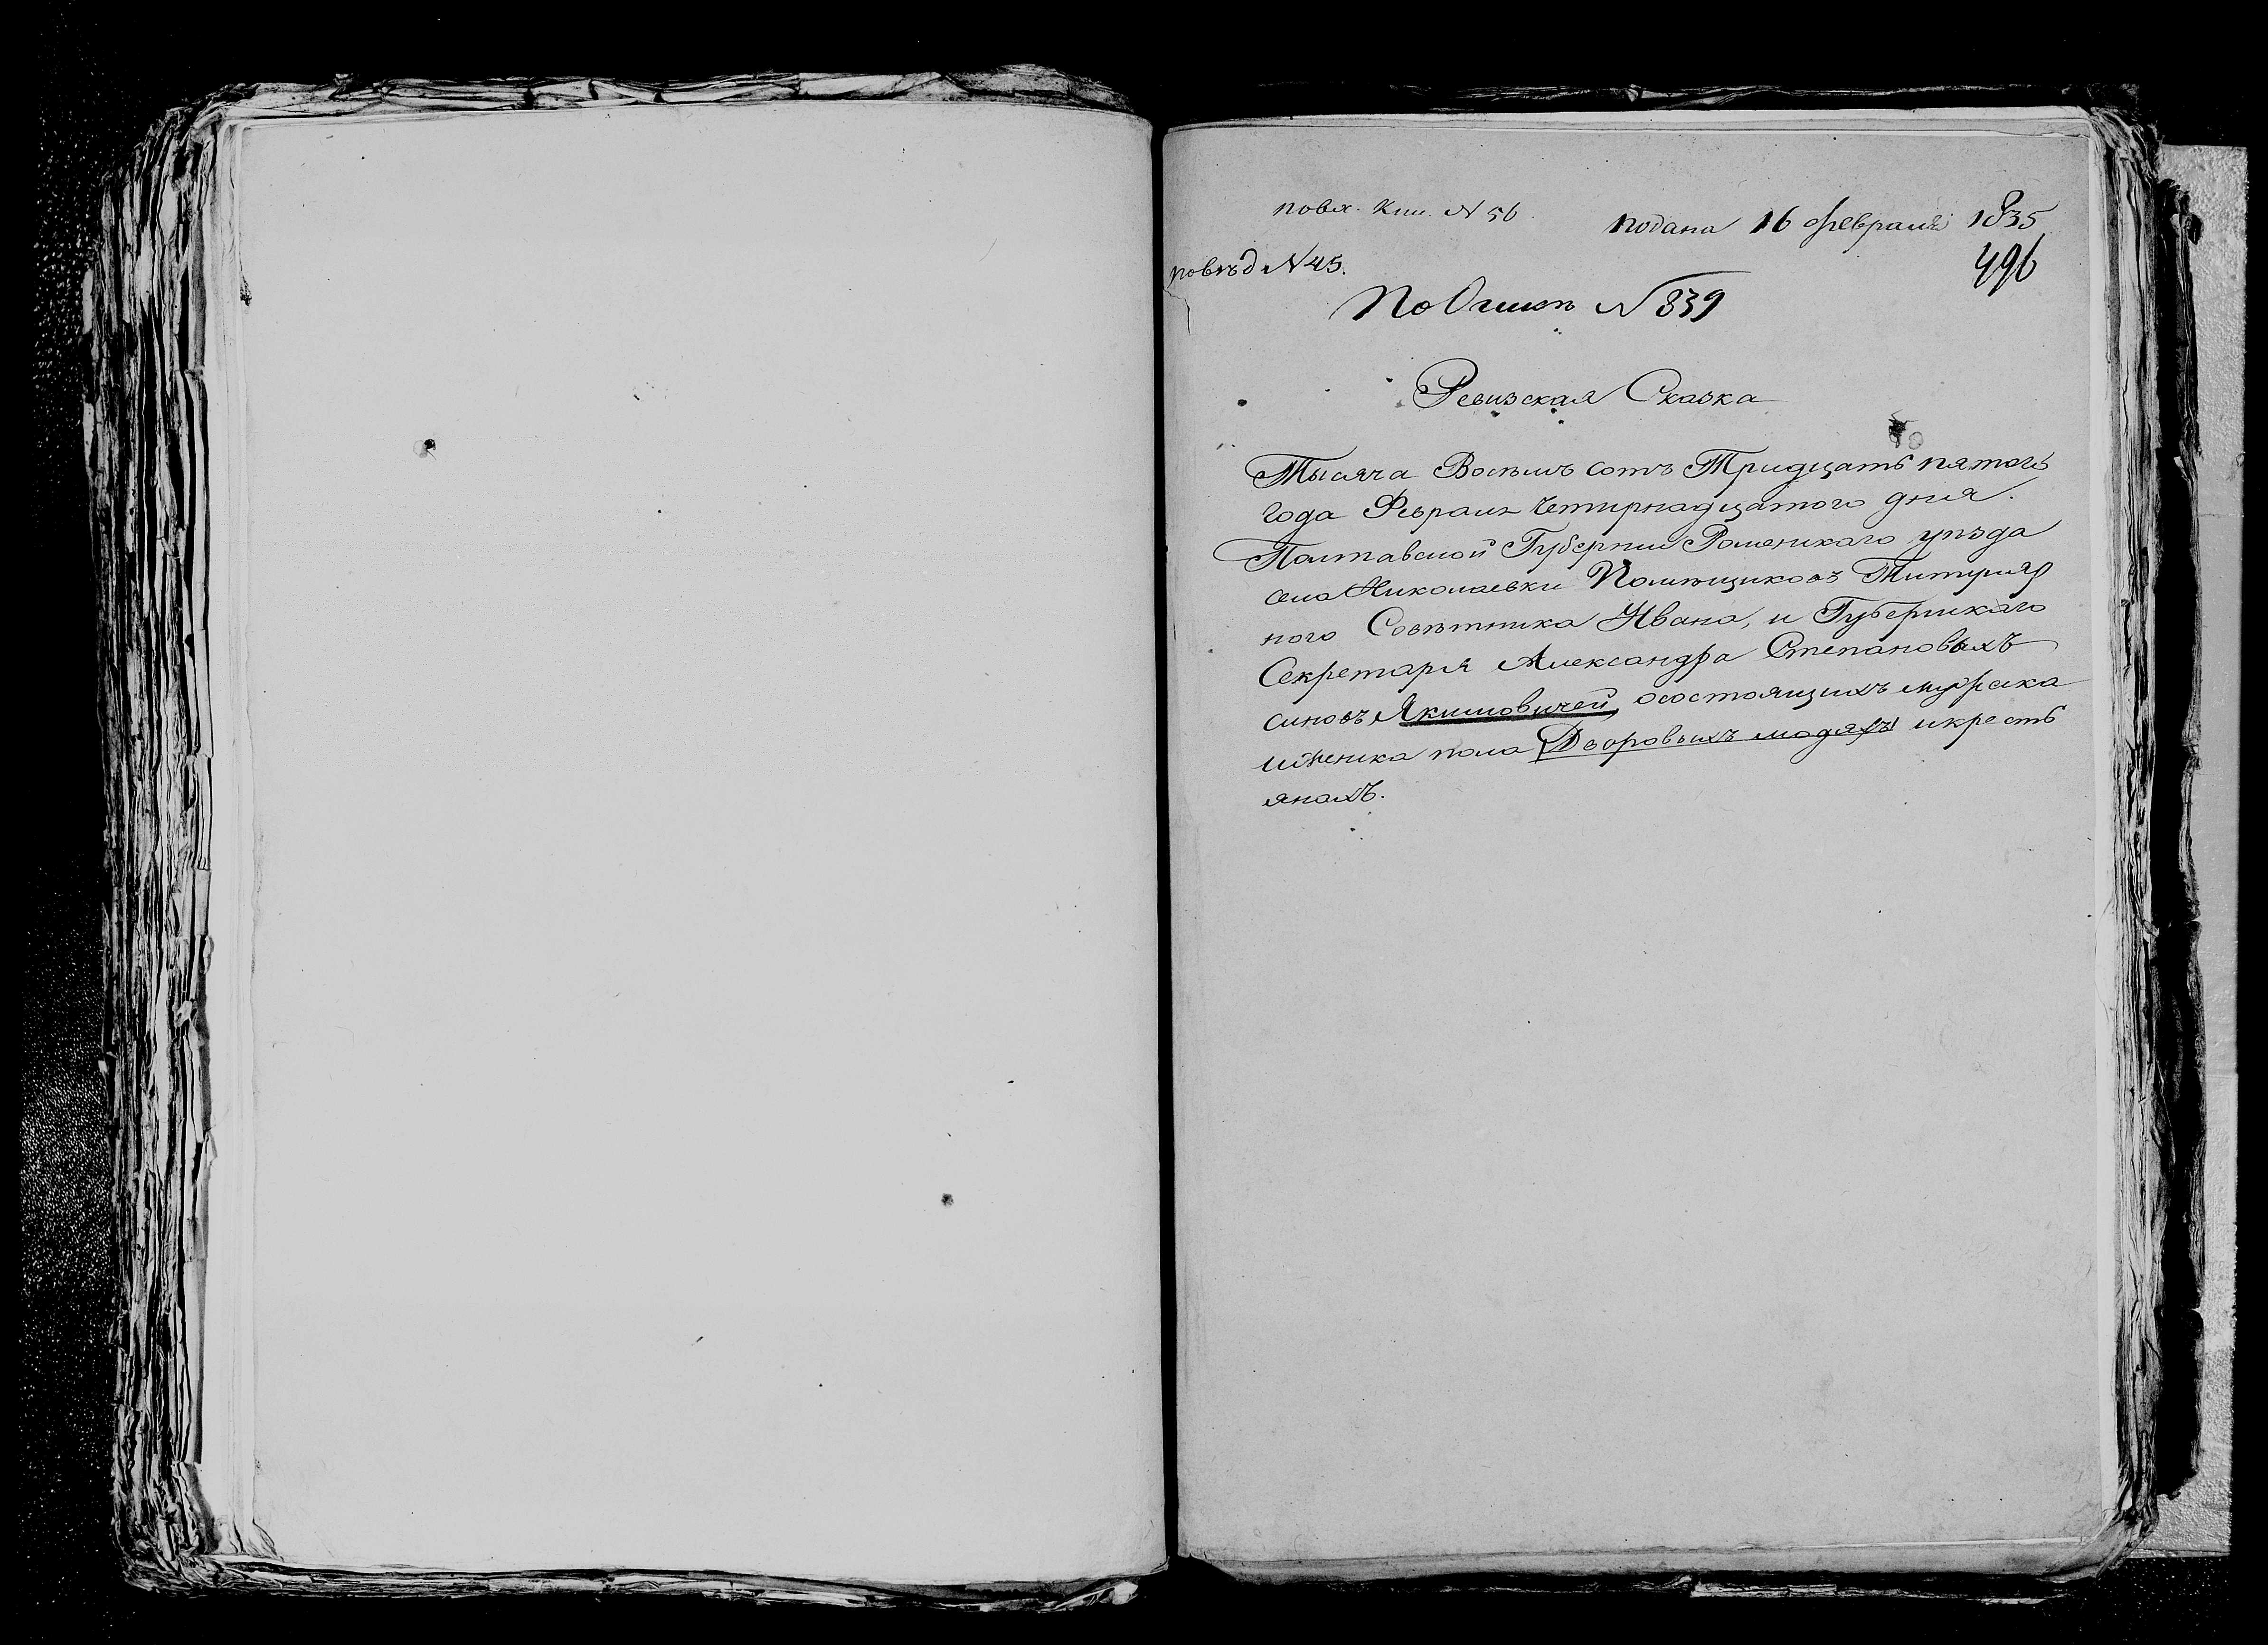 по вх. Кни. N 56.
подана 16 февраля 1835
496
по вѣд N 45.
По Описи N 839
Ревизская Сказка
Тысяча Восемь сотъ Тридцать пятого
года Февраля Четирнадцатого дня.
Полтавской Губернии Роменского уѣзда
села Николаевки Помѣщиковъ Титуляр
ного Совѣтника Ивана, и Губернскаго
Секретаря Александра Степановыхъ
синовъ Якимовичей, осостоящихъ мужеска
иженска пола Дворовыхъ людяхъ икресть
янахъ.